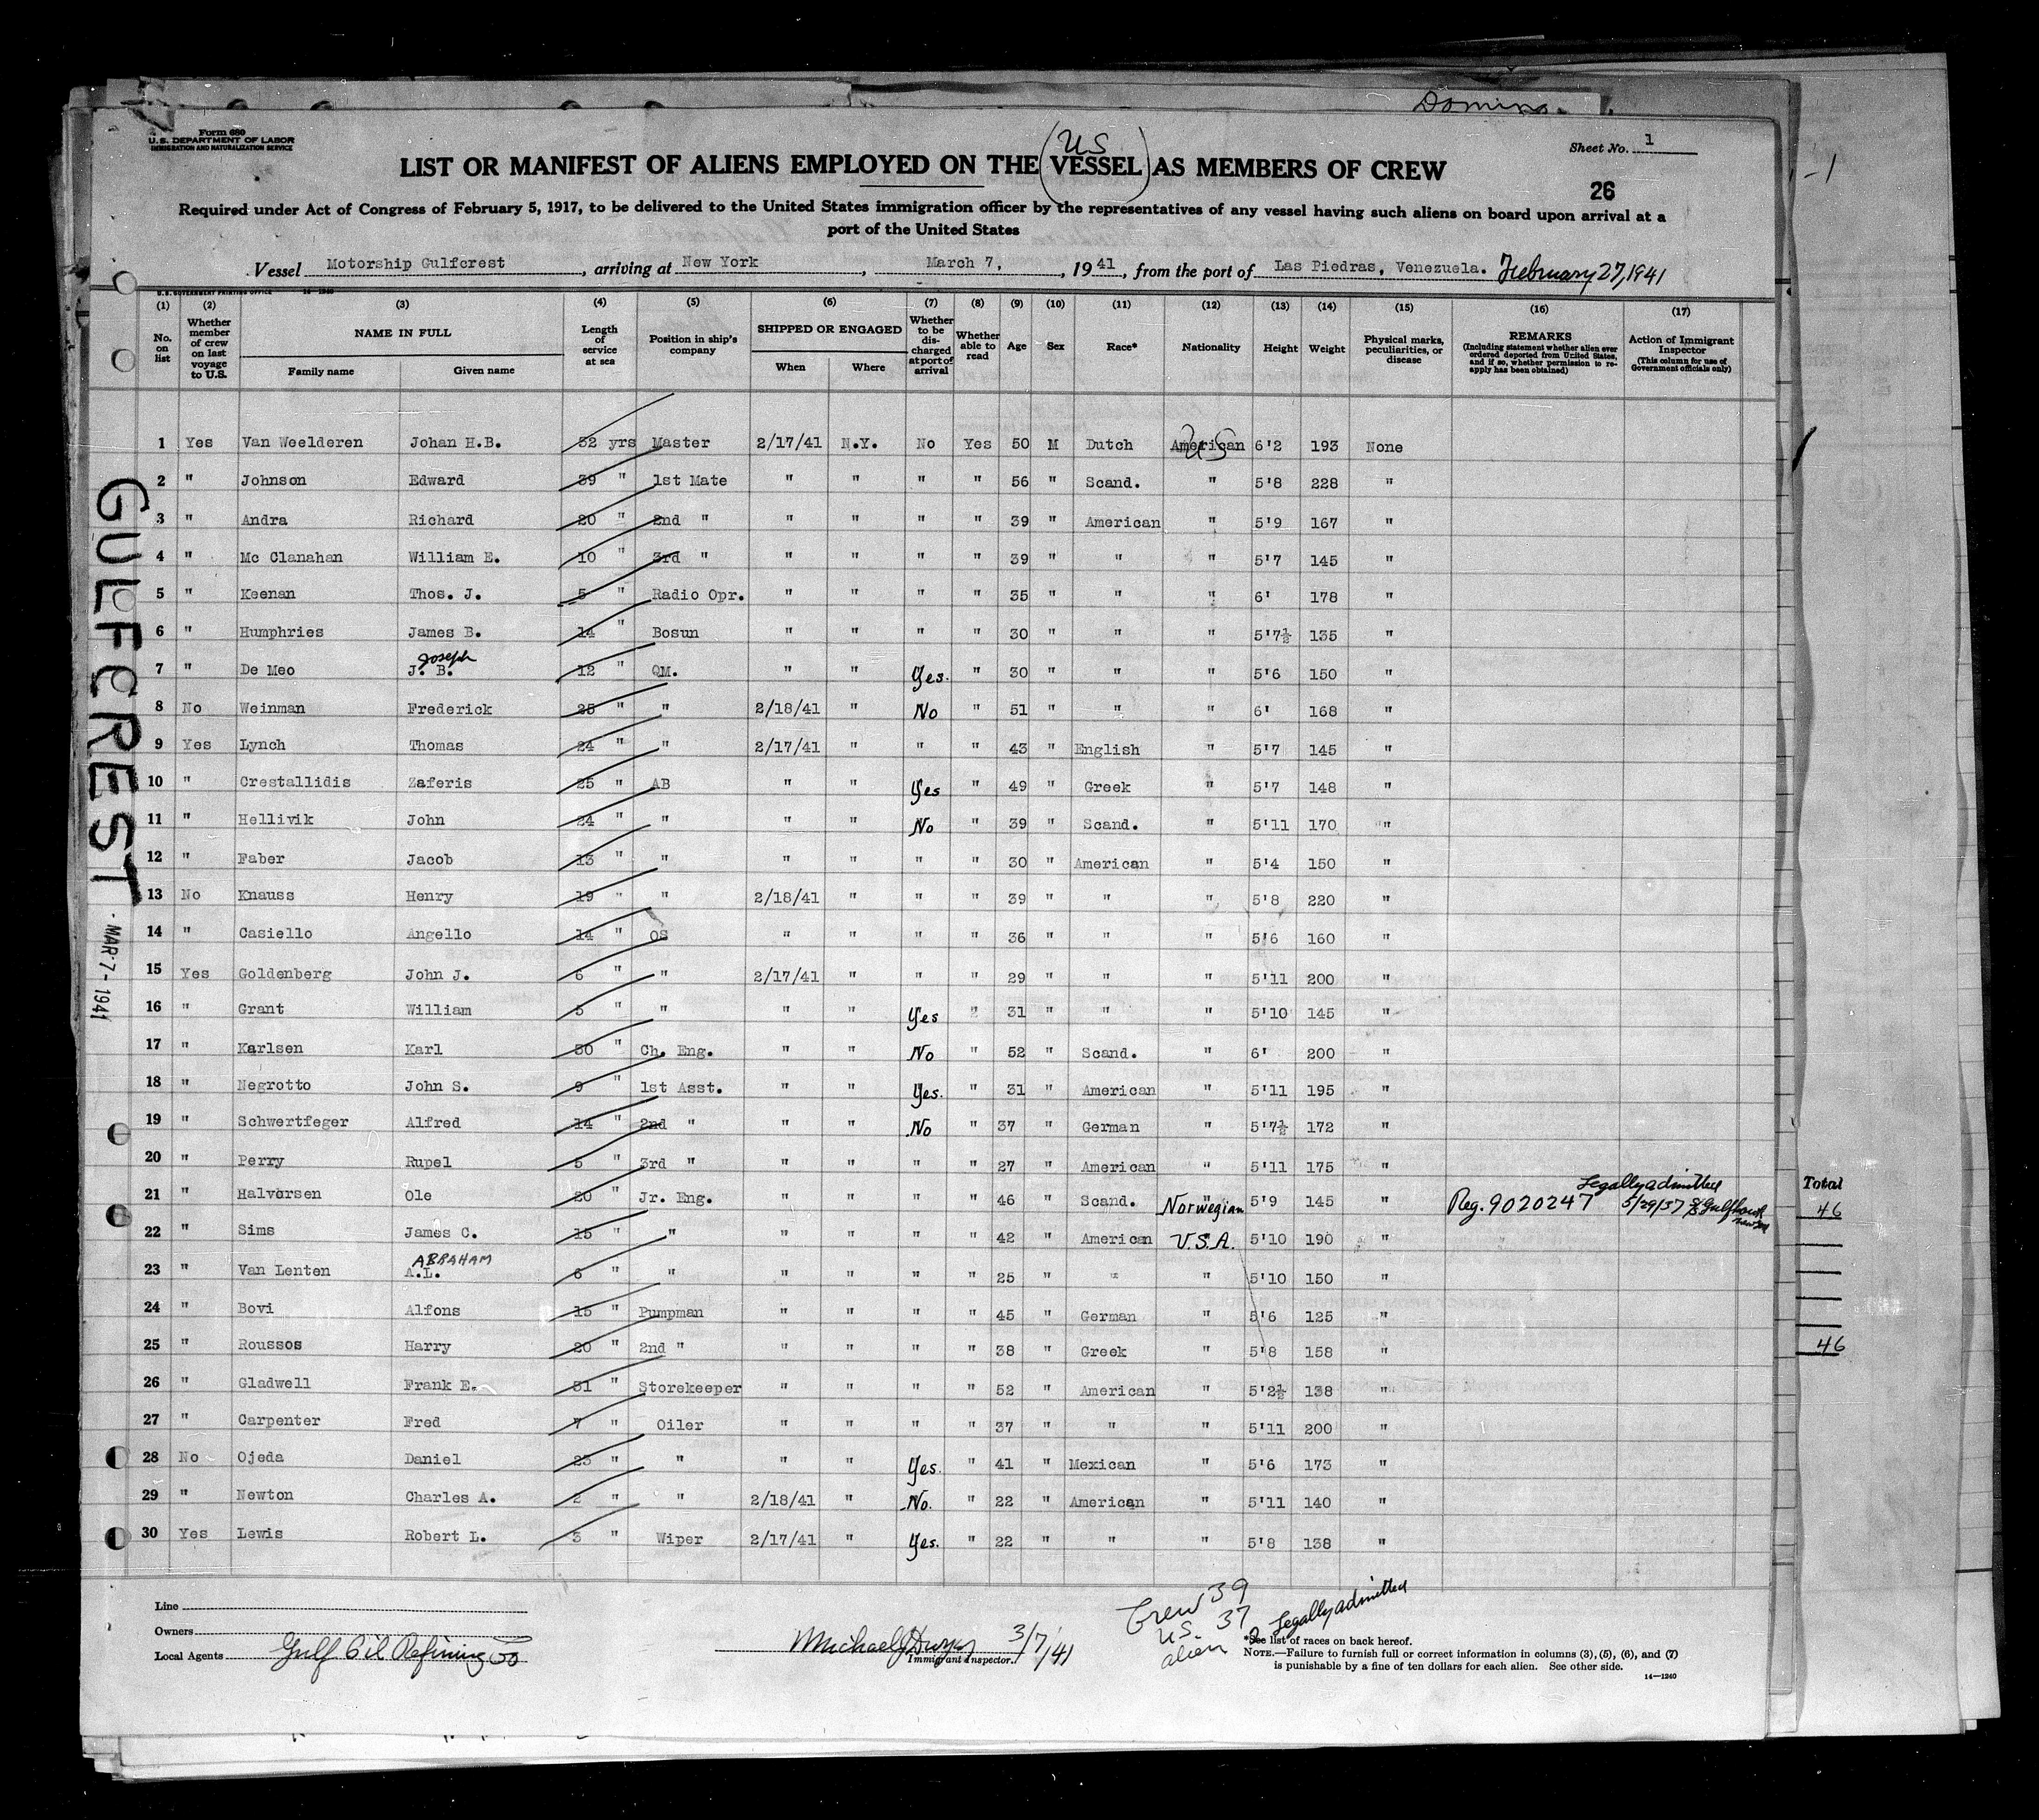 Domino.
Form 680
U.S. DEPARTMENT OF LABOR
IMMIGRATION AND NATURALIZATION SERVICE
Sheet No. 1
US
LIST OR MANIFEST OF ALIENS EMPLOYED ON THE (VESSEL) AS MEMBERS OF CREW
26
Required under Act of Congress of February 5, 1917, to be delivered to the United States immigration officer by the representatives of any vessel having such aliens on board upon arrival at a
port of the United States
Vessel Motorship Gulfcrest, arriving at New York, March 7, , 1941, from the port of Las Piedras, Venezuela. February 27, 1941
U.S. GOVERNMENT PRINTING OFFICE
(1) (2) (3) (4) (5) (6) (7) (8) (9) (10) (11) (12) (13) (14) (15) (16) (17)
No. on list
Whether member of crew on last voyage to U.S.
NAME IN FULL
Family name
Given name
Length of service at sea
Position in ship's company
SHIPPED OR ENGAGED
When
Where
Whether to be discharged at port of arrival
Whether able to read
Age
Sex
Race*
Nationality
Height
Weight
Physical marks, peculiarities, or disease
REMARKS
(Including statement whether alien ever ordered deported from United States, and if so, whether permission to reapply has been obtained)
Action of Immigrant Inspector
(This column for use of Government officials only)
1 Yes Van Weelderen Johan H.B. 32 yrs Master 2/17/41 N.Y. No Yes 50 M Dutch American US 6'2 193 None
2 " Johnson Edward 39 " 1st Mate " " " " 56 " Scand. " 5'8 228 "
3 " Andra Richard 20 " 2nd " " " " " 39 " American " 5'9 167 "
4 " Mc Clanahan William E. 10 " 3rd " " " " " 39 " " " 5'7 145 "
5 " Keenan Thos. J. 5 " Radio Opr. " " " " 35 " " " 6' 178 "
6 " Humphries James B. 14 " Bosun " " " " 30 " " " 5'7½ 135 "
7 " De Meo J. B. Joseph 12 " QM. " " Yes. " 30 " " " 5'6 150 "
8 No Weinman Frederick 25 " " 2/18/41 " No " 51 " " " 6' 168 "
9 Yes Lynch Thomas 24 " " 2/17/41 " " " 43 " English " 5'7 145 "
10 " Crestallidis Zaferis 25 " AB " " Yes " 49 " Greek " 5'7 148 "
11 " Hellivik John 24 " " " " No " 39 " Scand. " 5'11 170 "
12 " Faber Jacob 13 " " " " " " 30 " American " 5'4 150 "
13 No Knauss Henry 19 " " 2/18/41 " " " 39 " " " 5'8 220 "
14 " Casiello Angello 14 " OS " " " " 36 " " " 5'6 160 "
15 Yes Goldenberg John J. 6 " " 2/17/41 " " " 29 " " " 5'11 200 "
16 " Grant William 5 " " " " Yes " 31 " " " 5'10 145 "
17 " Karlsen Karl 30 " Ch. Eng. " " No " 52 " Scand. " 6' 200 "
18 " Negrotto John S. 9 " 1st Asst. " " Yes. " 31 " American " 5'11 195 "
19 " Schwertfeger Alfred 14 " 2nd " " " No " 37 " German " 5'7½ 172 "
20 " Perry Rupel 5 " 3rd " " " " " 27 " American " 5'11 175 "
21 " Halvorsen Ole 20 " Jr. Eng. " " " " 46 " Scand. Norwegian 5'9 145 " Reg. 9020247 Legally admitted 5/29/37 SS Gulfhawk
22 " Sims James C. 15 " " " " " " 42 " American U.S.A. 5'10 190 "
23 " Van Lenten A.L. ABRAHAM 6 " " " " " " 25 " " " 5'10 150 "
24 " Bovi Alfons 15 " Pumpman " " " " 45 " German " 5'6 125 "
25 " Roussos Harry 20 " 2nd " " " " " 38 " Greek " 5'8 158 "
26 " Gladwell Frank E. 31 " Storekeeper " " " " 52 " American " 5'2½ 138 "
27 " Carpenter Fred 7 " Oiler " " " " 37 " " " 5'11 200 "
28 No Ojeda Daniel 23 " " " " Yes. " 41 " Mexican " 5'6 173 "
29 " Newton Charles A. 2 " " 2/18/41 " No. " 22 " American " 5'11 140 "
30 Yes Lewis Robert L. 3 " Wiper 2/17/41 " Yes. " 22 " " " 5'8 138 "
GULFCREST
MAR 7-1941
Total
46
46
Line
Owners
Local Agents Gulf Oil Refining Co
Michael J Dwyer 3/7/41
Immigrant Inspector.
Crew 39
US. 37
alien 2 Legally admitted
*See list of races on back hereof.
NOTE.—Failure to furnish full or correct information in columns (3), (5), (6), and (7)
is punishable by a fine of ten dollars for each alien. See other side.
14—1240